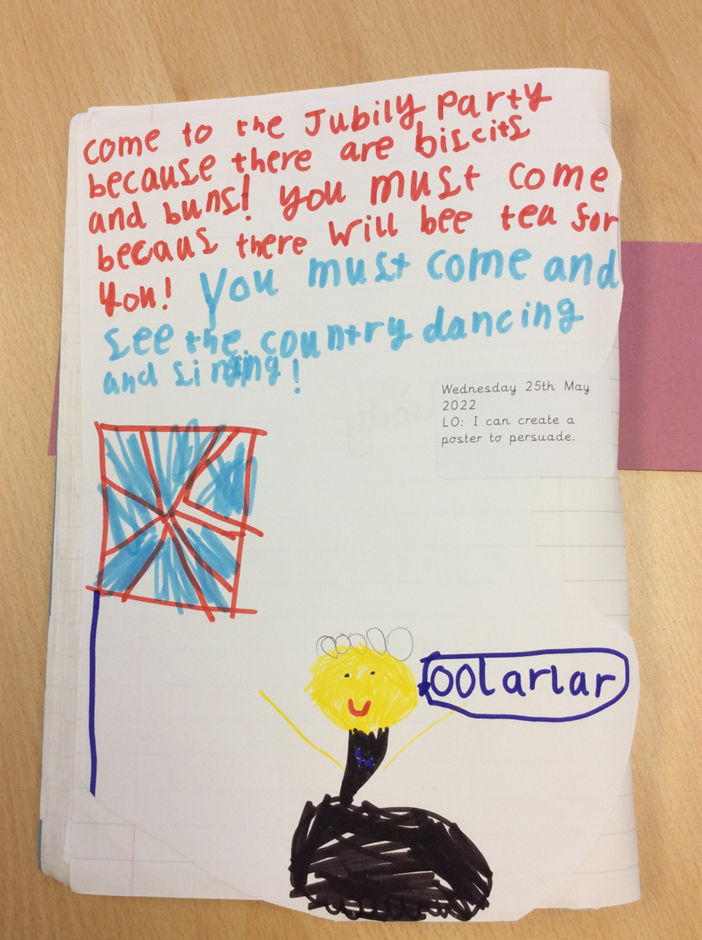 come to the Jubily Party
because there are biscits
and buns! you must come
becaus there will bee tea for
you! you must come and
see the country dancing
and sinnging!
Wednesday 25th May
2022
LO: I can create a
poster to persuade.
oolarlar